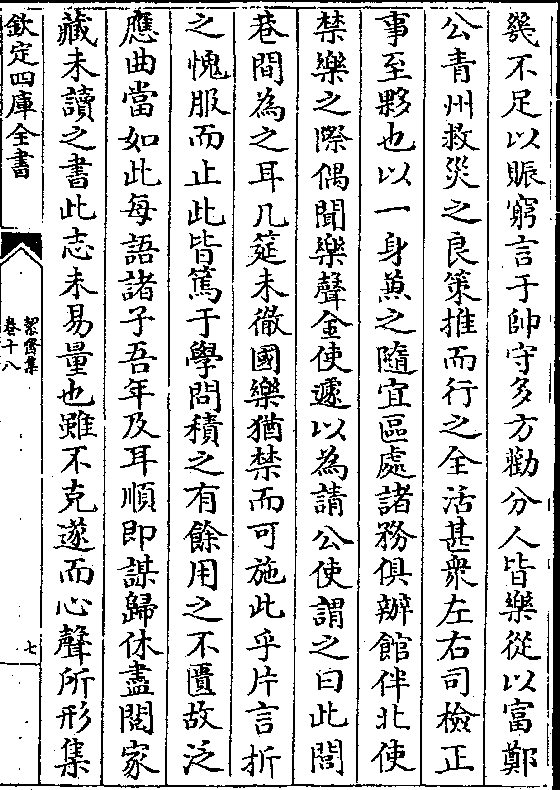 幾不足以賑窮言于帥守多方勸分人皆樂從以富鄭
公青州救災之良策推而行之全活甚衆左右司檢正
事至夥也以一身兼之隨宜區處諸務俱辦館伴北使
禁樂之際偶聞樂聲金使遽以為請公使謂之曰此閭
巷間為之耳几筵未徹國樂猶禁而可施此乎片言折
之愧服而止此皆篤于學問積之有餘用之不匱故泛
應曲當如此每語諸子吾年及耳順即謀歸休盡閱家
藏未讀之書此志未易量也雖不克遂而心聲所形集
欽定四庫全書
絜齋集
卷十八
七